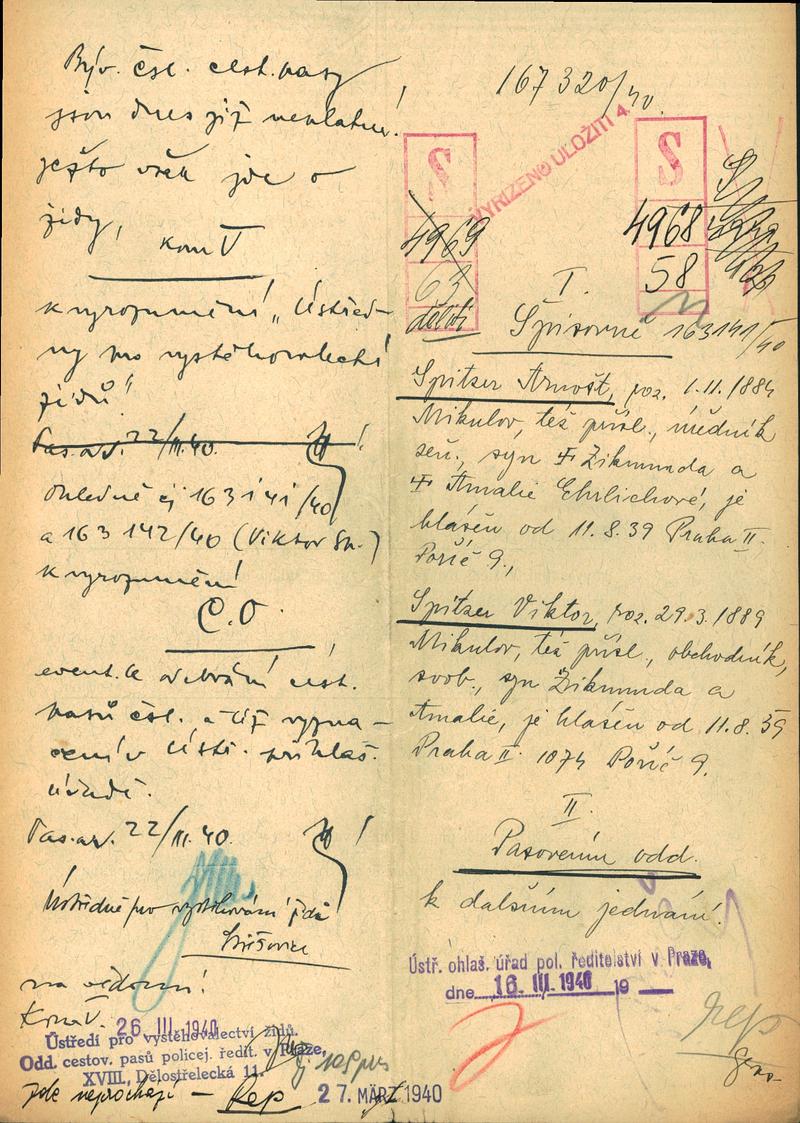 Býv. čsl. cest. pasy
jsou dnes již neplatné!
ježto však jde o
židy,
kom V
k vyrozumění „Ústřed-
ny pro vystěhovalectví
židů"
Pas. odd. 22/III. 40. !
Ohledně čj 163141/40
a 163142/40 (Viktor Sp.)
k vyrozumění
C.O.
event. k odebrání cest.
pasů čsl. a též vyzna-
čení v Ústř. přihlaš.
úřadě.
22/III. 40. !
Ústředně pro vystěhování židů
Střešovice
na vědomí!
Kom V.
26. III. 1940
Ústředí pro vystěhovalectví židů.
Odd. cestov. pasů policej. ředit. v Praze,
XVIII, Dělostřelecká 11.
Zde neprochází —
27. MÄRZ 1940
167320/40.
VYŘIZENO ULOŽITI 4.
S
4969
63
děliti
S
4968
58
I.
Spisovně 163141/40
Spitzer Arnošt, roz. 1.11.1884
Mikulov, též přísl., úředník
žen., syn Zikmunda a
Amalie Ehrlichové, je
hlášen od 11.8.39 Praha II.
Poříč 9.,
Spitzer Viktor, roz. 29.3.1889
Mikulov, též přísl., obchodník,
svob., syn Zikmunda a
Amalie, je hlášen od 11.8.39
Praha II. 1074 Poříč 9.
II.
Pasovému odd.
k dalšímu jednání.
Ústř. ohlaš. úřad pol. ředitelství v Praze,
dne 16. III. 1940 19